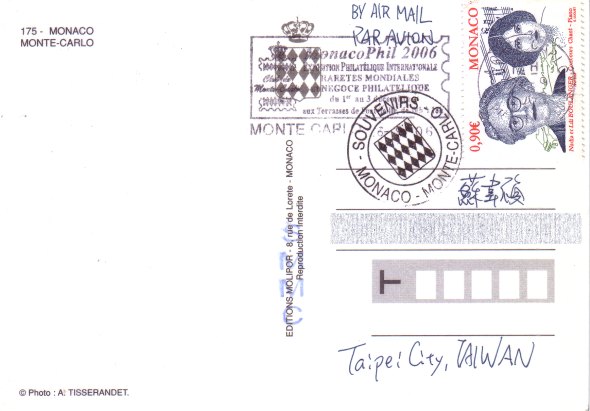 175 - MONACO
MONTE-CARLO
BY AIR MAIL
PAR AVION
MonacoPhil 2006
EXPOSITION PHILATÉLIQUE INTERNATIONALE
RARETÉS MONDIALES
NÉGOCE PHILATÉLIQUE
du 1er au 3
aux Terrasses de
MONTE CARLO
SOUVENIRS
MONACO - MONTE-CARLO
MONACO
0,90€
Nadia et Lili BOULANGER
Chant - Piano
EDITIONS MOLIPOR - 8, rue de Lorete - MONACO
Reproduction Interdite
T
Taipei City, TAIWAN
© Photo : A: TISSERANDET.